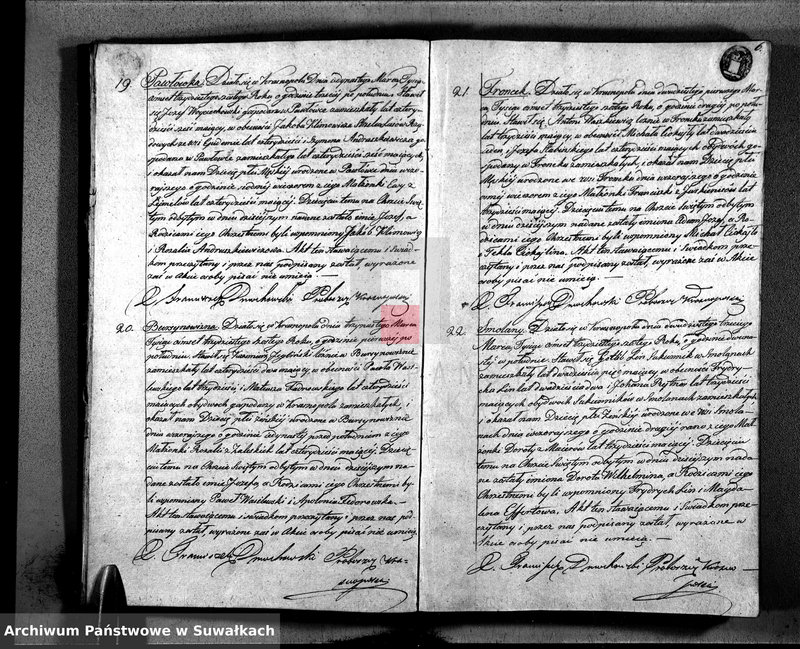 19 Pawłówka. Działo się w Krasnopolu Dnia dwunastego Marca Tysiąc
ośmset trzydziestego szóstego Roku, o godzinie trzeciej po południu. Stawił
się Józef Wojciechowski gospodarz w Pawłówce zamieszkały lat czter-
dzieści sześć mający, w obecności Jakóba Klimowicza
lat czterdzieści i Szymona Andruszkiewicza gos-
podarza w Pawłówce zamieszkałego lat czterdzieści sześć mających,
i okazał nam Dziecię płci Męskiej urodzone w Pawłówce dnia wczo-
rajszego o godzinie siódmej wieczorem z jego Małżonki Ewy z
lat czterdzieści mającej. Dziecięciu temu na Chrzcie Świę-
tym odbytym w dniu dzisiejszym nadane zostało imię Józef, a
Rodzicami jego Chrzestnemi byli wspomniony Jakób Klimowicz
i Rozalia Andruszkiewiczowa. Akt ten stawającemu i Świad-
kom przeczytany i przez nas podpisany został, wyrażone
zaś w Akcie osoby pisać nie umieją. —
X. Franciszek Dmochowski Proboszcz Krasnopolski
20. Buczynowizna. Działo się w Krasnopolu dnia trzynastego Marca
Tysiąc ośmset trzydziestego szóstego Roku, o godzinie pierwszej po
południu. Stawił się w Buczynowiznie
zamieszkały lat czterdzieści dwa mający, w obecności Pawła Wasi-
lewskiego lat trzydzieści, i Mateusza Fiedorowskiego lat czterdzieści
mających obydwóch gospodarzy w Krasnopolu zamieszkałych, i
okazał nam Dziecię płci Żeńskiej urodzone w Buczynowiznie
dnia wczorajszego o godzinie jedynastej przed południem z jego
Małżonki Rozalii z Zaleskich lat trzydzieści mającej. Dziecię-
ciu temu na Chrzcie Świętym odbytym w dniu dzisiejszym na-
dane zostało imię Józefa, a Rodzicami jego Chrzestnemi by-
li wspomniony Paweł Wasilewski i Apolonia Fedorowska. —
Akt ten stawającemu i świadkom przeczytany i przez nas pod-
pisany został, wyrażone zaś w Akcie osoby pisać nie umieją
X. Franciszek Dmochowski Proboszcz Kra-
snopolski
6.
21 Froncek. Działo się w Krasnopolu dnia dwudziestego pierwszego Mar-
ca, Tysiąc ośmset trzydziestego szóstego Roku, o godzinie drugiej po połu-
dniu. Stawił się Antoni w Froncku zamieszkały
lat trzydzieści mający, w obecności Michała lat dwadzieścia
jeden i Józefa lat czterdzieści mających obydwóch gos-
podarzy w Froncku zamieszkałych, i okazał nam Dziecię płci
Męskiej urodzone we wsi Froncku dnia wczorajszego o godzinie
ósmej wieczorem z jego Małżonki Franciszki z lat
trzydzieści mającej. Dziecięciu temu na Chrzcie Świętym odbytym
w dniu dzisiejszym nadane zostały imiona Adam Józef, a Ro-
dzicami jego Chrzestnemi byli wspomniony Michał
i Tekla. Akt ten stawającemu i Świadkom prze-
czytany i przez nas podpisany został, wyrażone zaś w Akcie
osoby pisać nie umieją. —
X. Franciszek Dmochowski Proboszcz Krasnopolski
22. Smolany. Działo się w Krasnopolu dnia dwudziestego trzeciego
Marca, Tysiąc ośmset trzydziestego szóstego Roku, o godzinie dwuna-
stej w południe. Stawił się Gotlib Lin Sukiennik w Smolanach
zamieszkały lat dwadzieścia pięć mający, w obecności Frydry-
ka Lin lat dwadzieścia dwa i Johana Rejtner lat trzydzieści
mających obydwóch Sukienników w Smolanach zamieszkałych,
i okazał nam Dziecię płci Żeńskiej urodzone we wsi Smola-
nach dnia wczorajszego o godzinie drugiej rano z jego Mał-
żonki Doroty z Macerów lat trzydzieści mającej. Dziecięciu
temu na Chrzcie Świętym odbytym w dniu dzisiejszym nada-
ne zostały imiona Dorota Wilhelmina, a Rodzicami jego
Chrzestnemi byli wspomniony Frydrych Lin i Magda-
lena Effertowa. Akt ten stawającemu i Świadkom prze-
czytany i przez nas podpisany został, wyrażone w
Akcie osoby pisać nie umieją. —
X. Franciszek Dmochowski Proboszcz Krasno-
polski
Archiwum Państwowe w Suwałkach